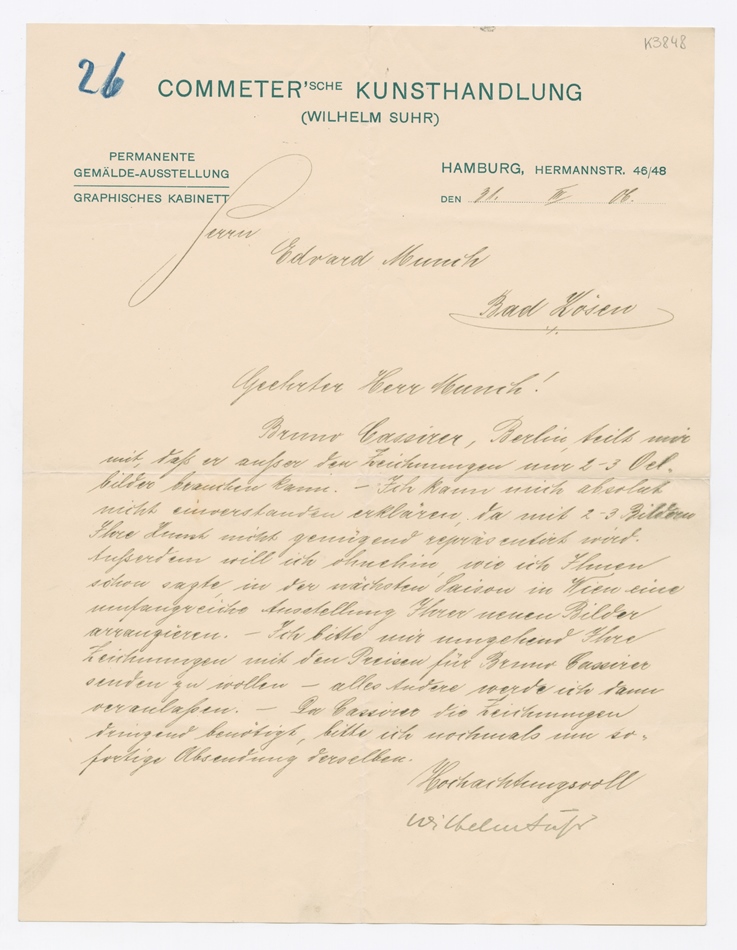 K3848
26
COMMETER'SCHE KUNSTHANDLUNG
(WILHELM SUHR)
PERMANENTE
GEMÄLDE-AUSSTELLUNG
GRAPHISCHES KABINETT
HAMBURG, HERMANNSTR. 46/48
DEN 31. III 06.
Herrn
Edvard Munch
Bad Kösen
Geehrter Herr Munch!
Bruno Cassirer, Berlin, teilt mir
mit, daß er außer den Zeichnungen nur 2-3 Oel-
bilder brauchen kann. – Ich kann mich absolut
nicht einverstanden erklären, da mit 2-3 Bildern
Ihre Kunst nicht genügend repräsentirt wird.
Außerdem will ich ohnehin, wie ich Ihnen
schon sagte, in der nächsten Saison in Wien eine
umfangreiche Ausstellung Ihrer neuen Bilder
arrangieren. – Ich bitte mir umgehend Ihre
Zeichnungen mit den Preisen für Bruno Cassirer
senden zu wollen – alles Andere werde ich dann
veranlaßen. – Da Cassirer die Zeichnungen
dringend benötigt, bitte ich nochmals um so-
fortige Absendung derselben.
Hochachtungsvoll
Wilhelm Suhr